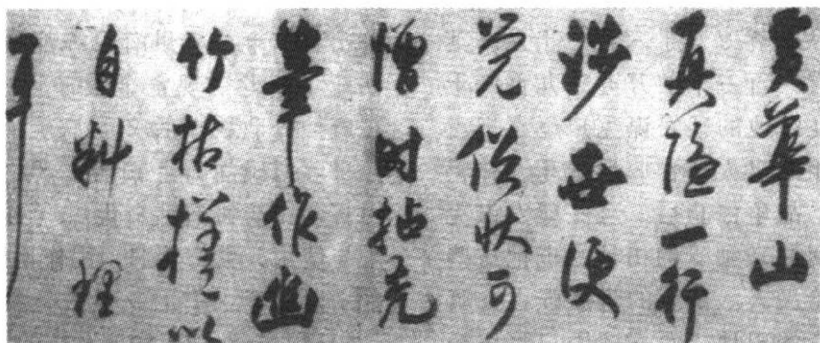 黄華山
真隱一行
涉世便
覺俗状可
憎時拈禿
筆作幽
竹枯槎以
自料理
耳